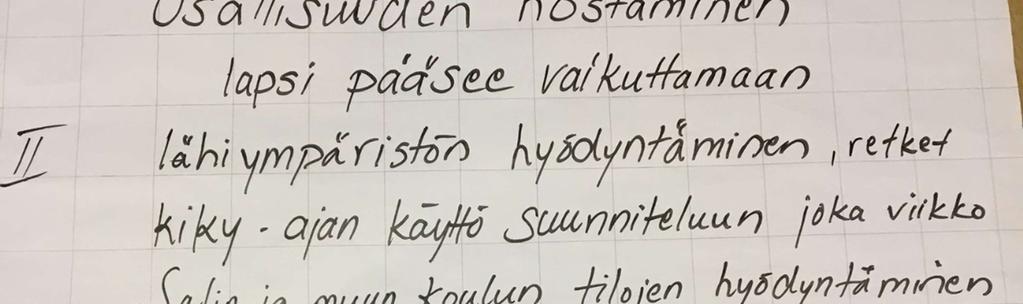 Osallisuuden nostaminen
lapsi pääsee vaikuttamaan
II lähiympäristön hyödyntäminen, retket
kiky-ajan käyttö suunniteluun joka viikko
Salin ja muun koulun tilojen hyödyntäminen